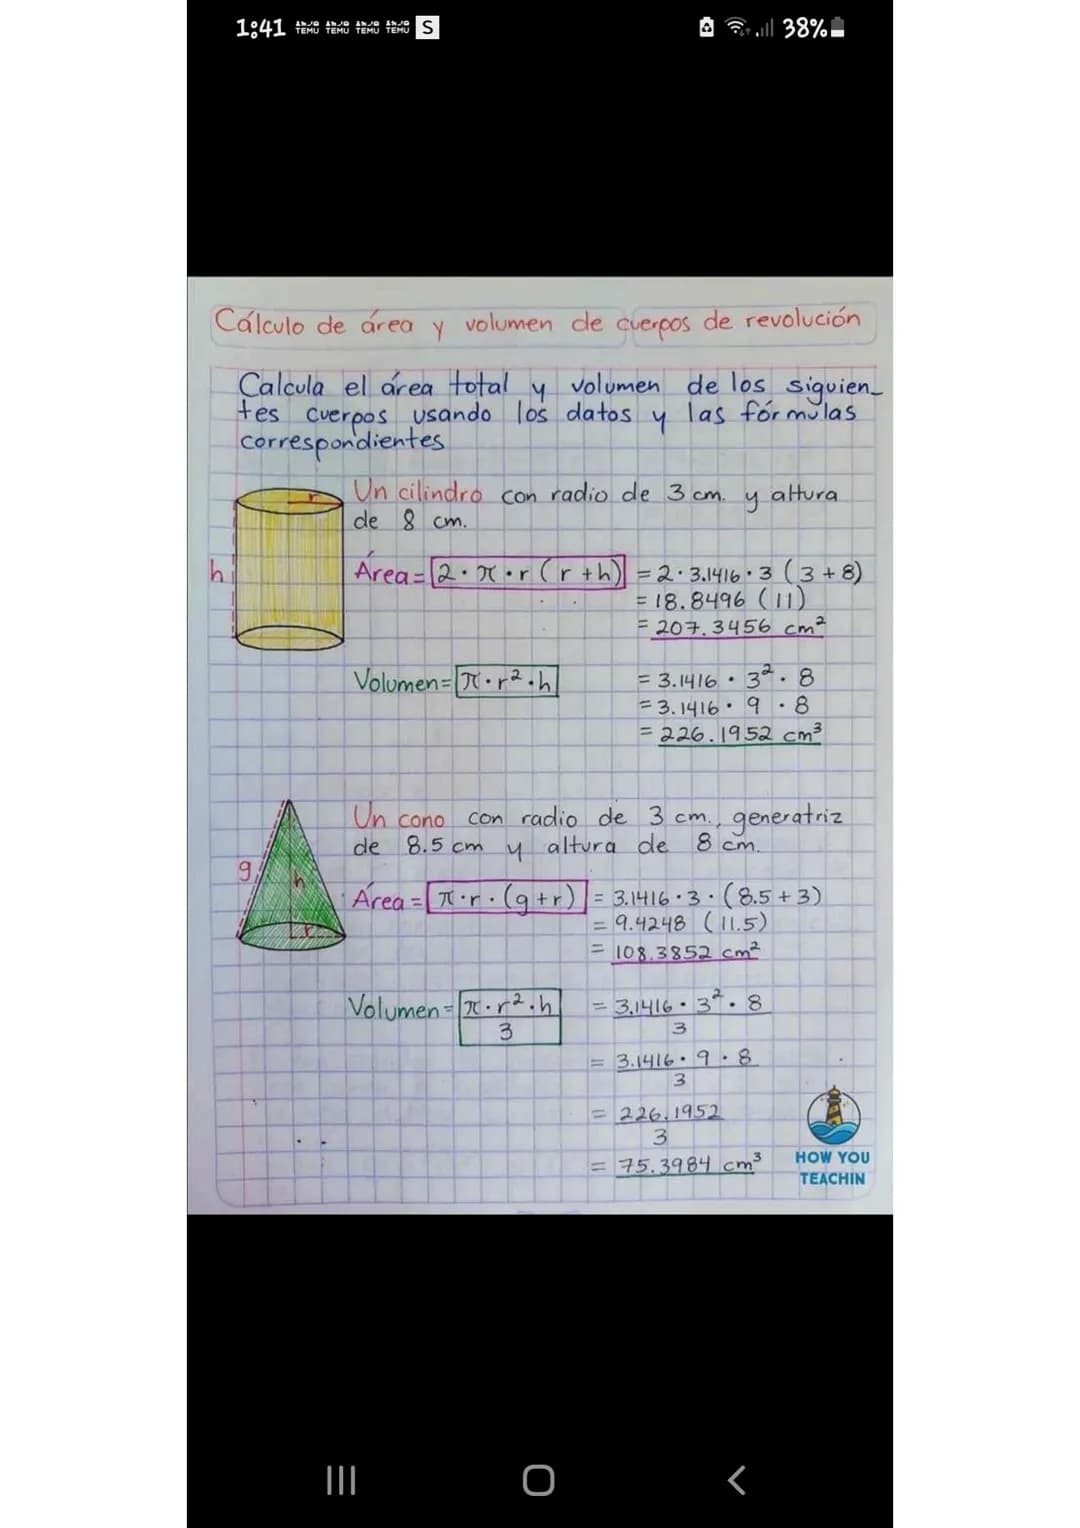 1:41 TEMU TEMU TEMU TEMU S 38%
Cálculo de área y volumen de cuerpos de revolución
Calcula el área total y volumen de los siguien-
tes cuerpos usando los datos y las fórmulas
correspondientes
r Un cilindro con radio de 3 cm. y altura
de 8 cm.
h Área = 2 · π · r (r + h) = 2 · 3.1416 · 3 (3 + 8)
= 18.8496 (11)
= 207.3456 cm²
Volumen = π · r² · h = 3.1416 · 3² · 8
= 3.1416 · 9 · 8
= 226.1952 cm³
Un cono con radio de 3 cm., generatriz
de 8.5 cm y altura de 8 cm.
g h r
Área = π · r · (g + r) = 3.1416 · 3 · (8.5 + 3)
= 9.4248 (11.5)
= 108.3852 cm²
Volumen = π · r² · h = 3.1416 · 3² · 8
3 3
= 3.1416 · 9 · 8
3
= 226.1952
3
= 75.3984 cm³
HOW YOU
TEACHIN